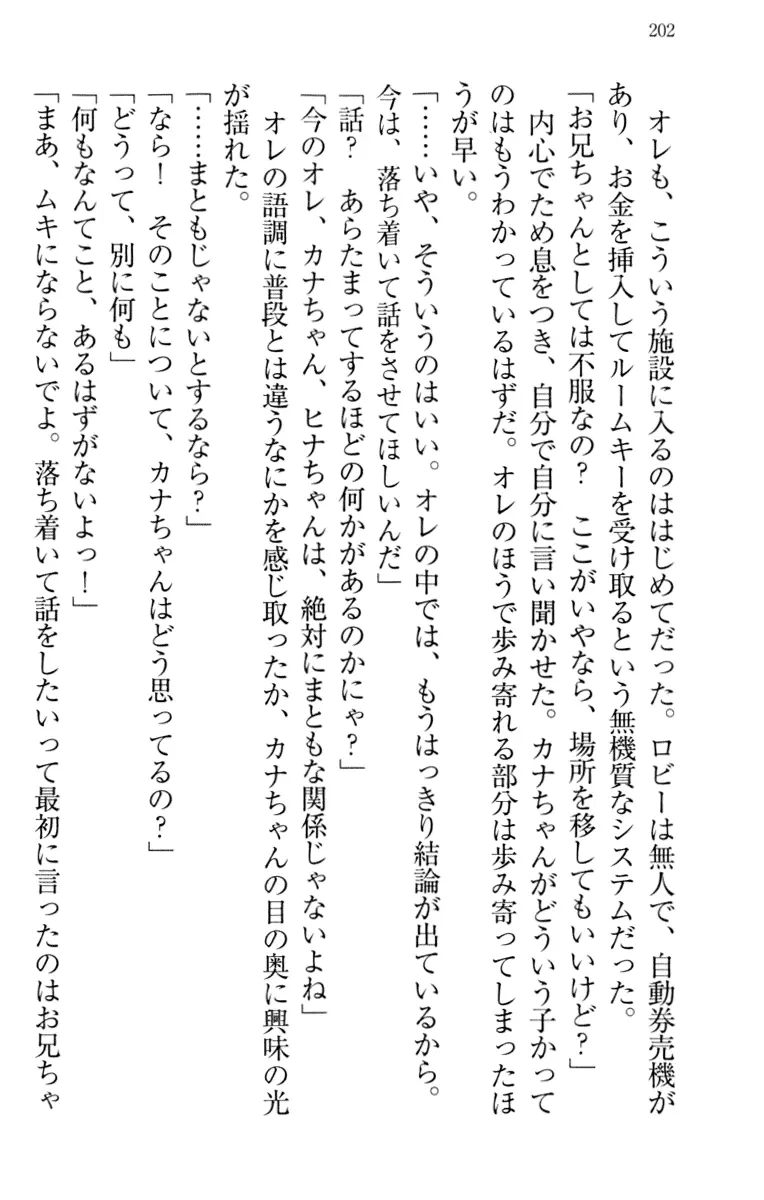 202
オレも、こういう施設に入るのははじめてだった。ロビーは無人で、自動券売機が
あり、お金を挿入してルームキーを受け取るという無機質なシステムだった。
「お兄ちゃんとしては不服なの？　ここがいやなら、場所を移してもいいけど？」
内心でため息をつき、自分で自分に言い聞かせた。カナちゃんがどういう子かって
のはもうわかっているはずだ。オレのほうで歩み寄れる部分は歩み寄ってしまったほ
うが早い。
「……いや、そういうのはいい。オレの中では、もうはっきり結論が出ているから。
今は、落ち着いて話をさせてほしいんだ」
「話？　あらたまってするほどの何かがあるのかにゃ？」
「今のオレ、カナちゃん、ヒナちゃんは、絶対にまともな関係じゃないよね」
オレの語調に普段とは違うなにかを感じ取ったか、カナちゃんの目の奥に興味の光
が揺れた。
「……まともじゃないとするなら？」
「なら！　そのことについて、カナちゃんはどう思ってるの？」
「どうって、別に何も」
「何もなんてこと、あるはずがないよっ！」
「まあ、ムキにならないでよ。落ち着いて話をしたいって最初に言ったのはお兄ちゃ